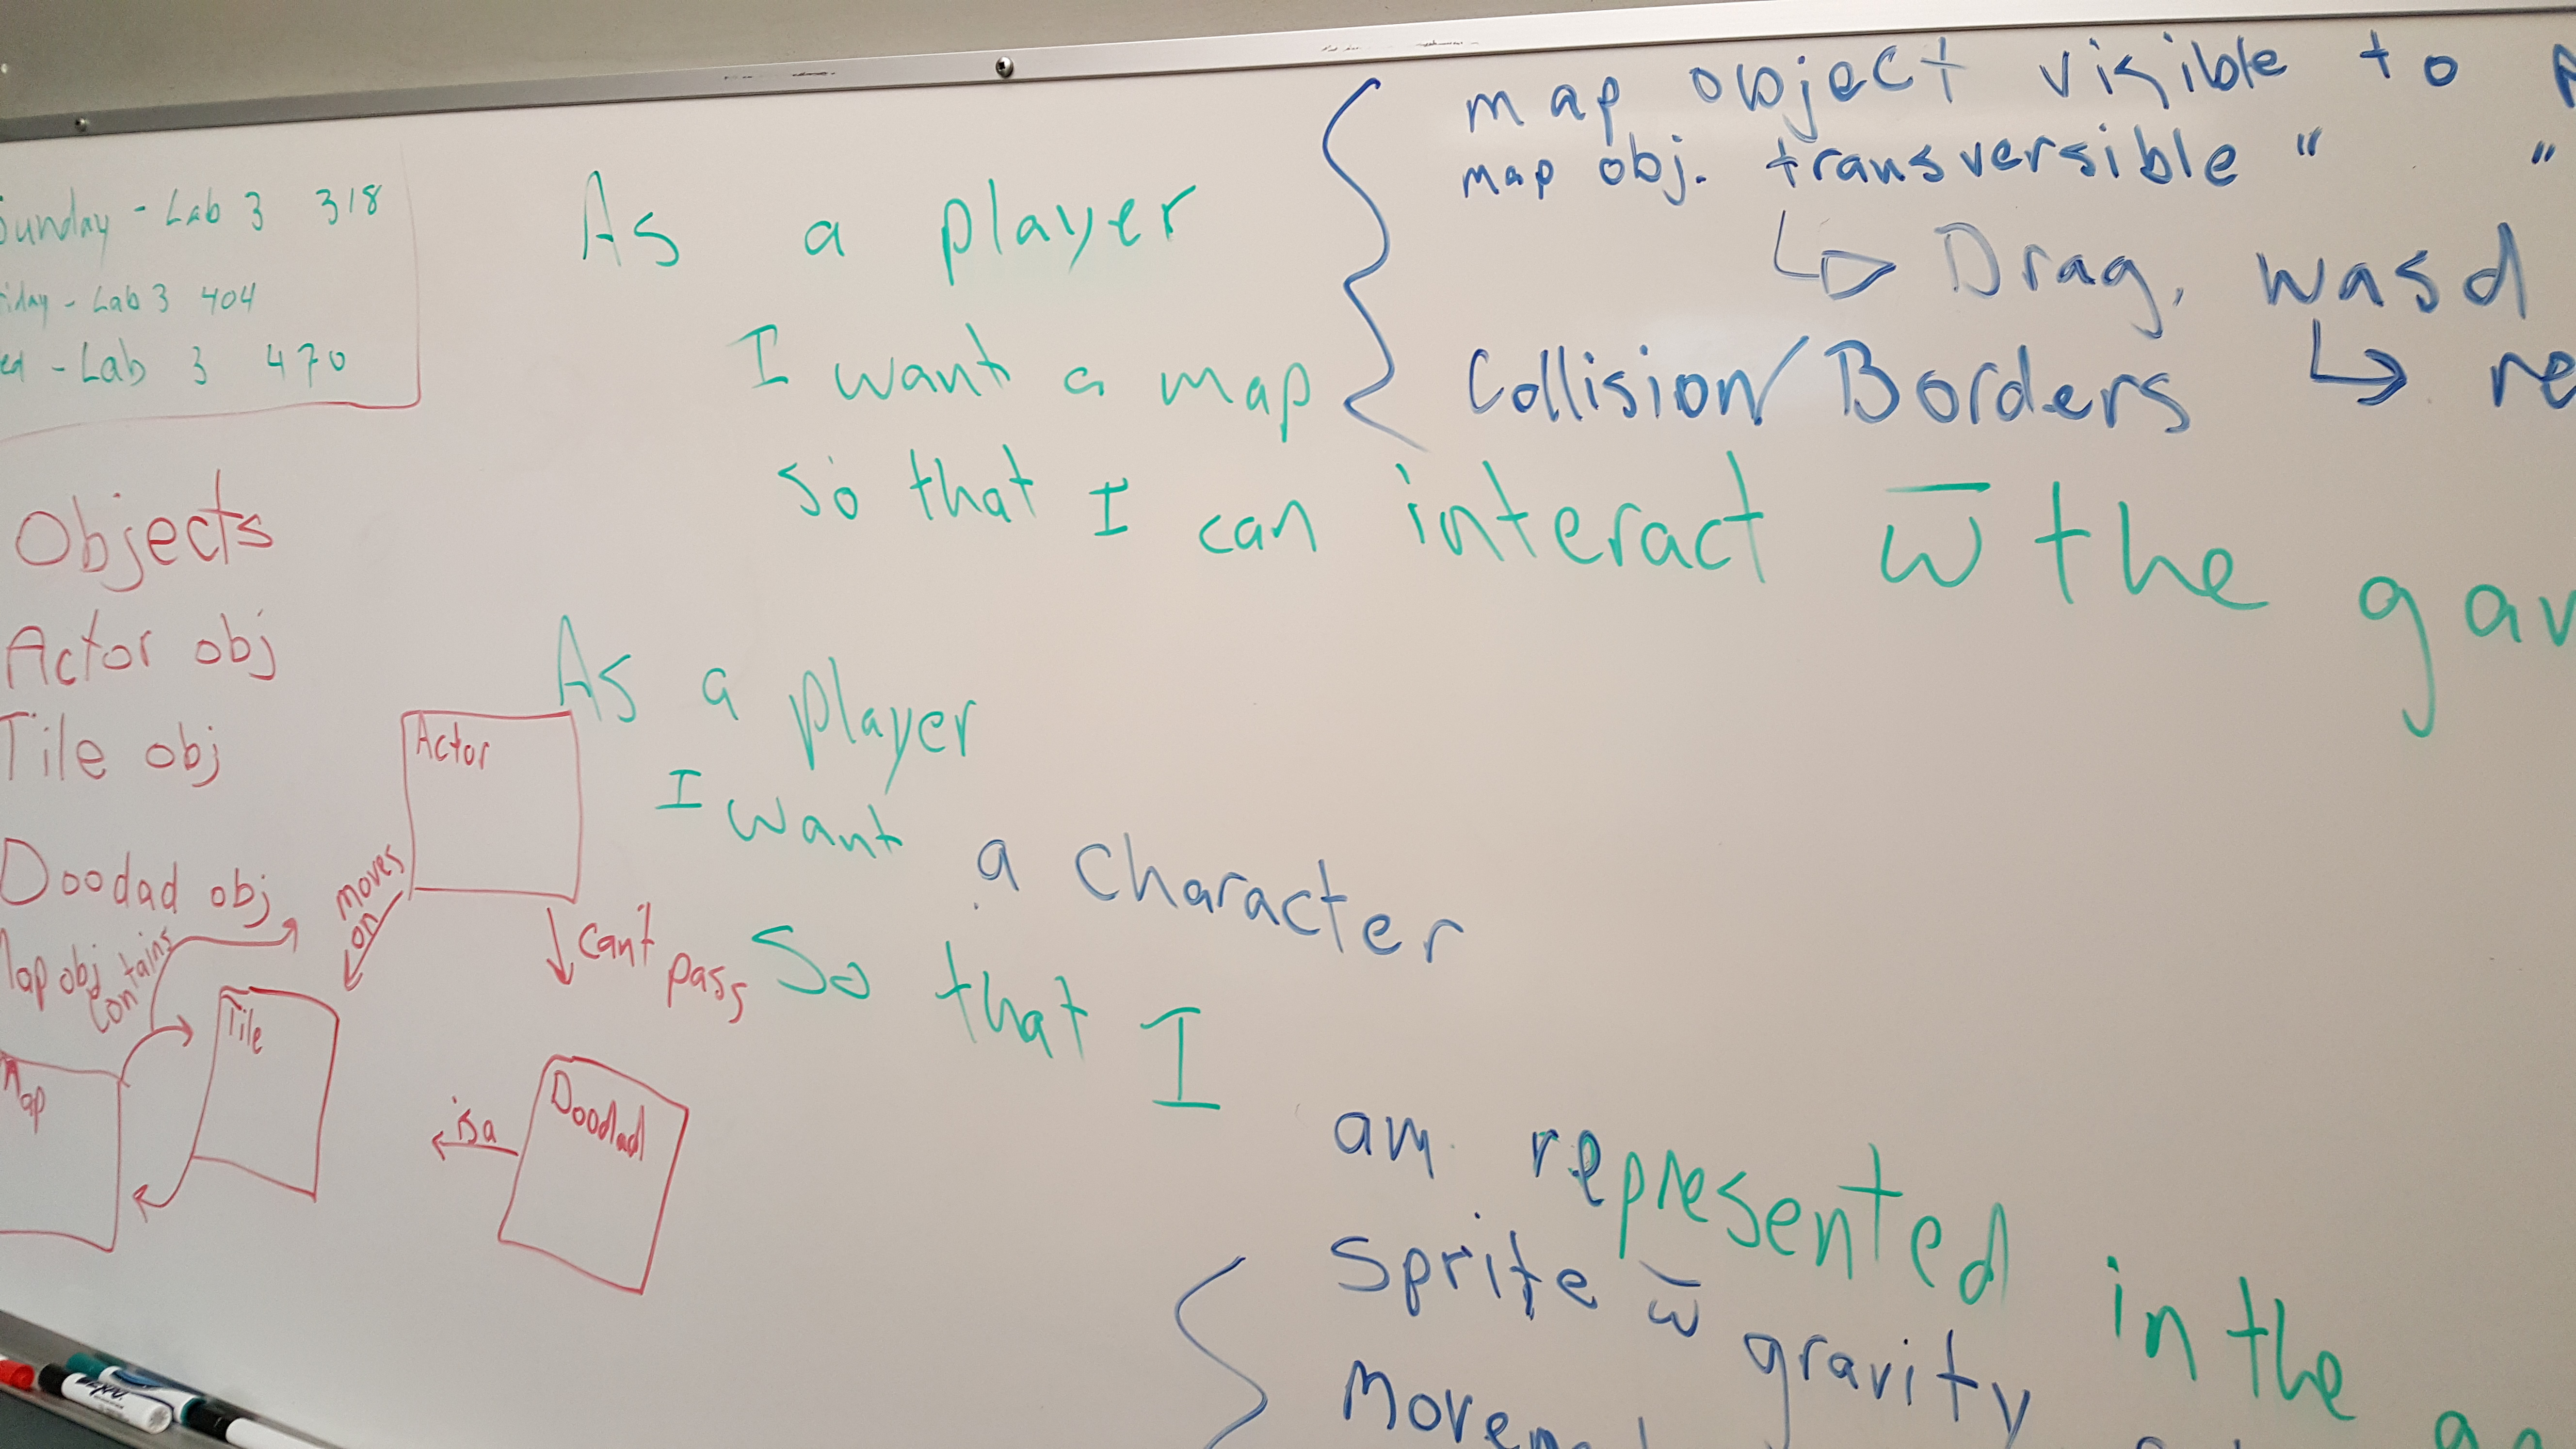 Sunday - Lab 3 318
iday - Lab 3 404
ed - Lab 3 470
Objects
Actor obj
Tile obj
Doodad obj
Map obj
contains
Map
Tile
moves
on
Actor
can't
pass
is a
Doodad
As a player
I want a map
so that I can interact w̅ the gam
map object visible to
map obj. transversible " "
Drag, wasd
Collision/Borders
re
As a player
I want a character
So that I
am represented in the
Sprite w̅ gravity
Movem